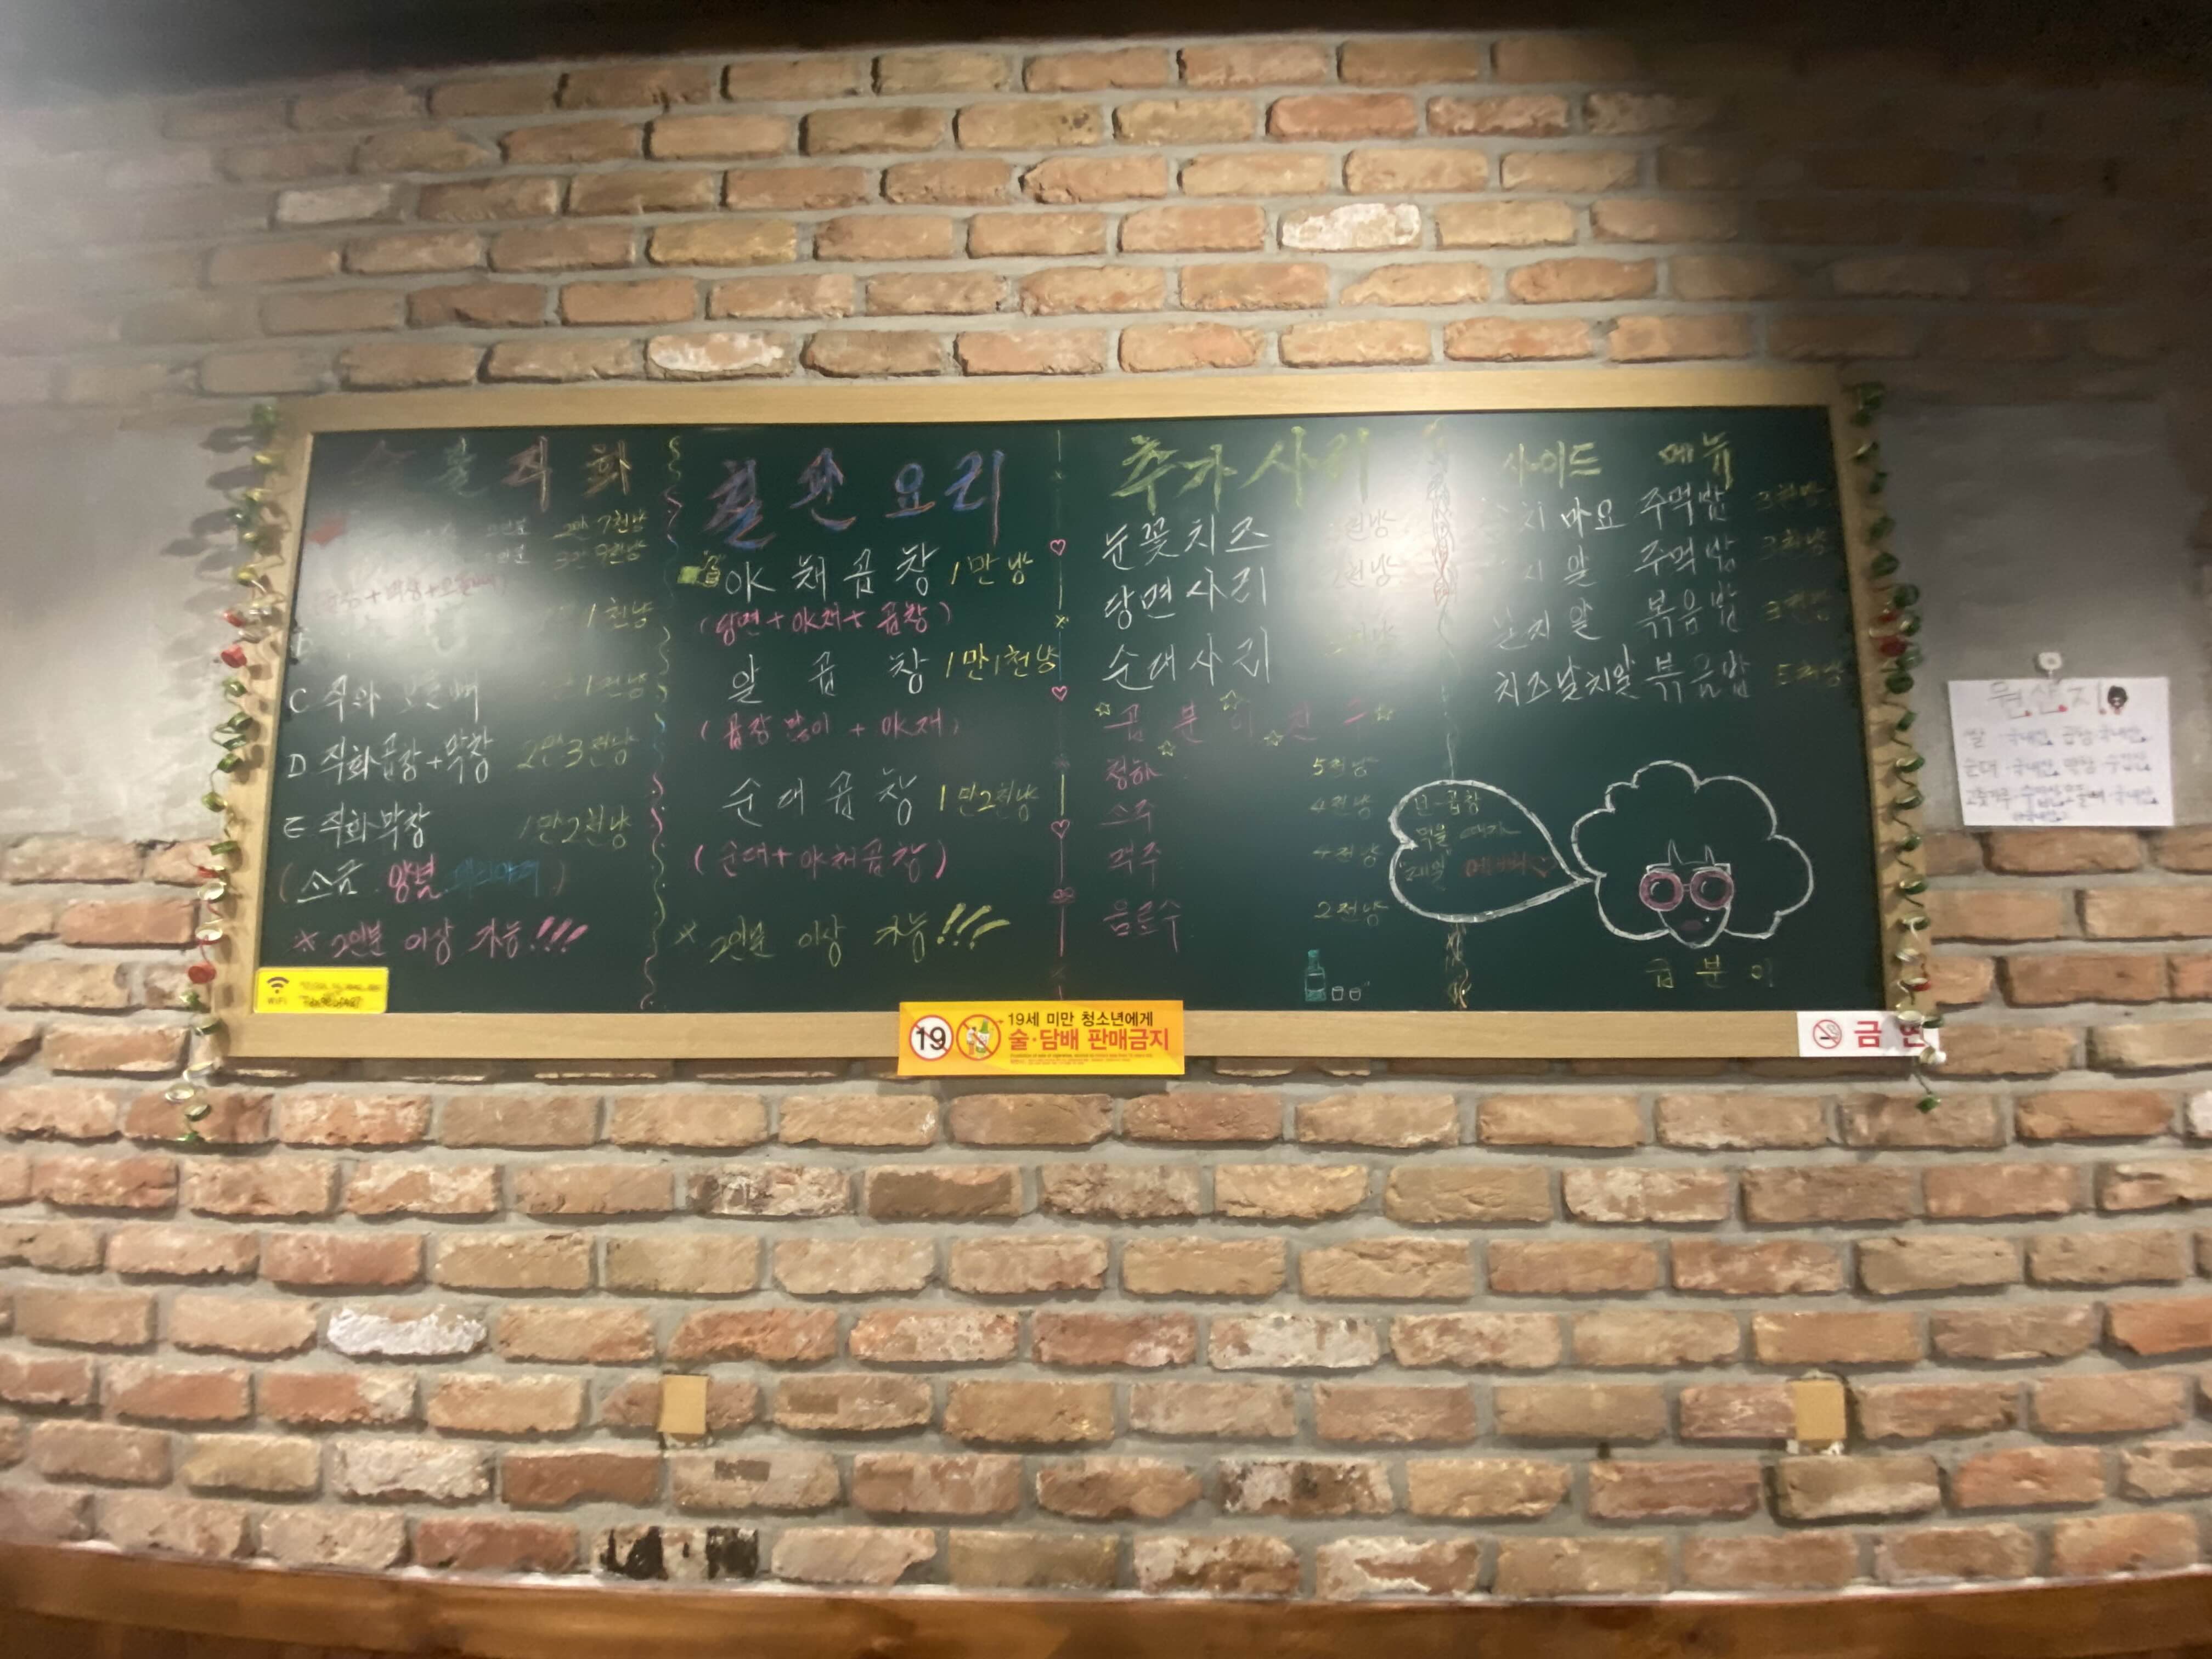 숯불직화
2만7천냥
3만9천냥
1천냥
C 직화 오돌뼈
D 직화곱창+막창 2만3천냥
E 직화막창 1만2천냥
(소금 양념 데리야끼)
※ 2인분 이상 가능!!!
WiFi
철판요리
야채곱창 1만냥
(당면+야채+곱창)
알곱창 1만1천냥
(곱창 많이 + 야채)
순대곱창 1만2천냥
(순대+야채곱창)
※ 2인분 이상 가능!!!
추가사리
눈꽃치즈
당면사리 2천냥
순대사리
곱분이친구
청하 5천냥
소주 4천냥
맥주 4천냥
음료수 2천냥
사이드 메뉴
참치마요 주먹밥 3천냥
날치알 주먹밥 3천냥
날치알 볶음밥 3천냥
치즈날치알 볶음밥 5천냥
난 곱창
먹을 때가
"제일"
곱분이
19 19세 미만 청소년에게
술·담배 판매금지
금연
원산지
쌀 국내산 곱창 국내산
순대 국내산 막창 수입산